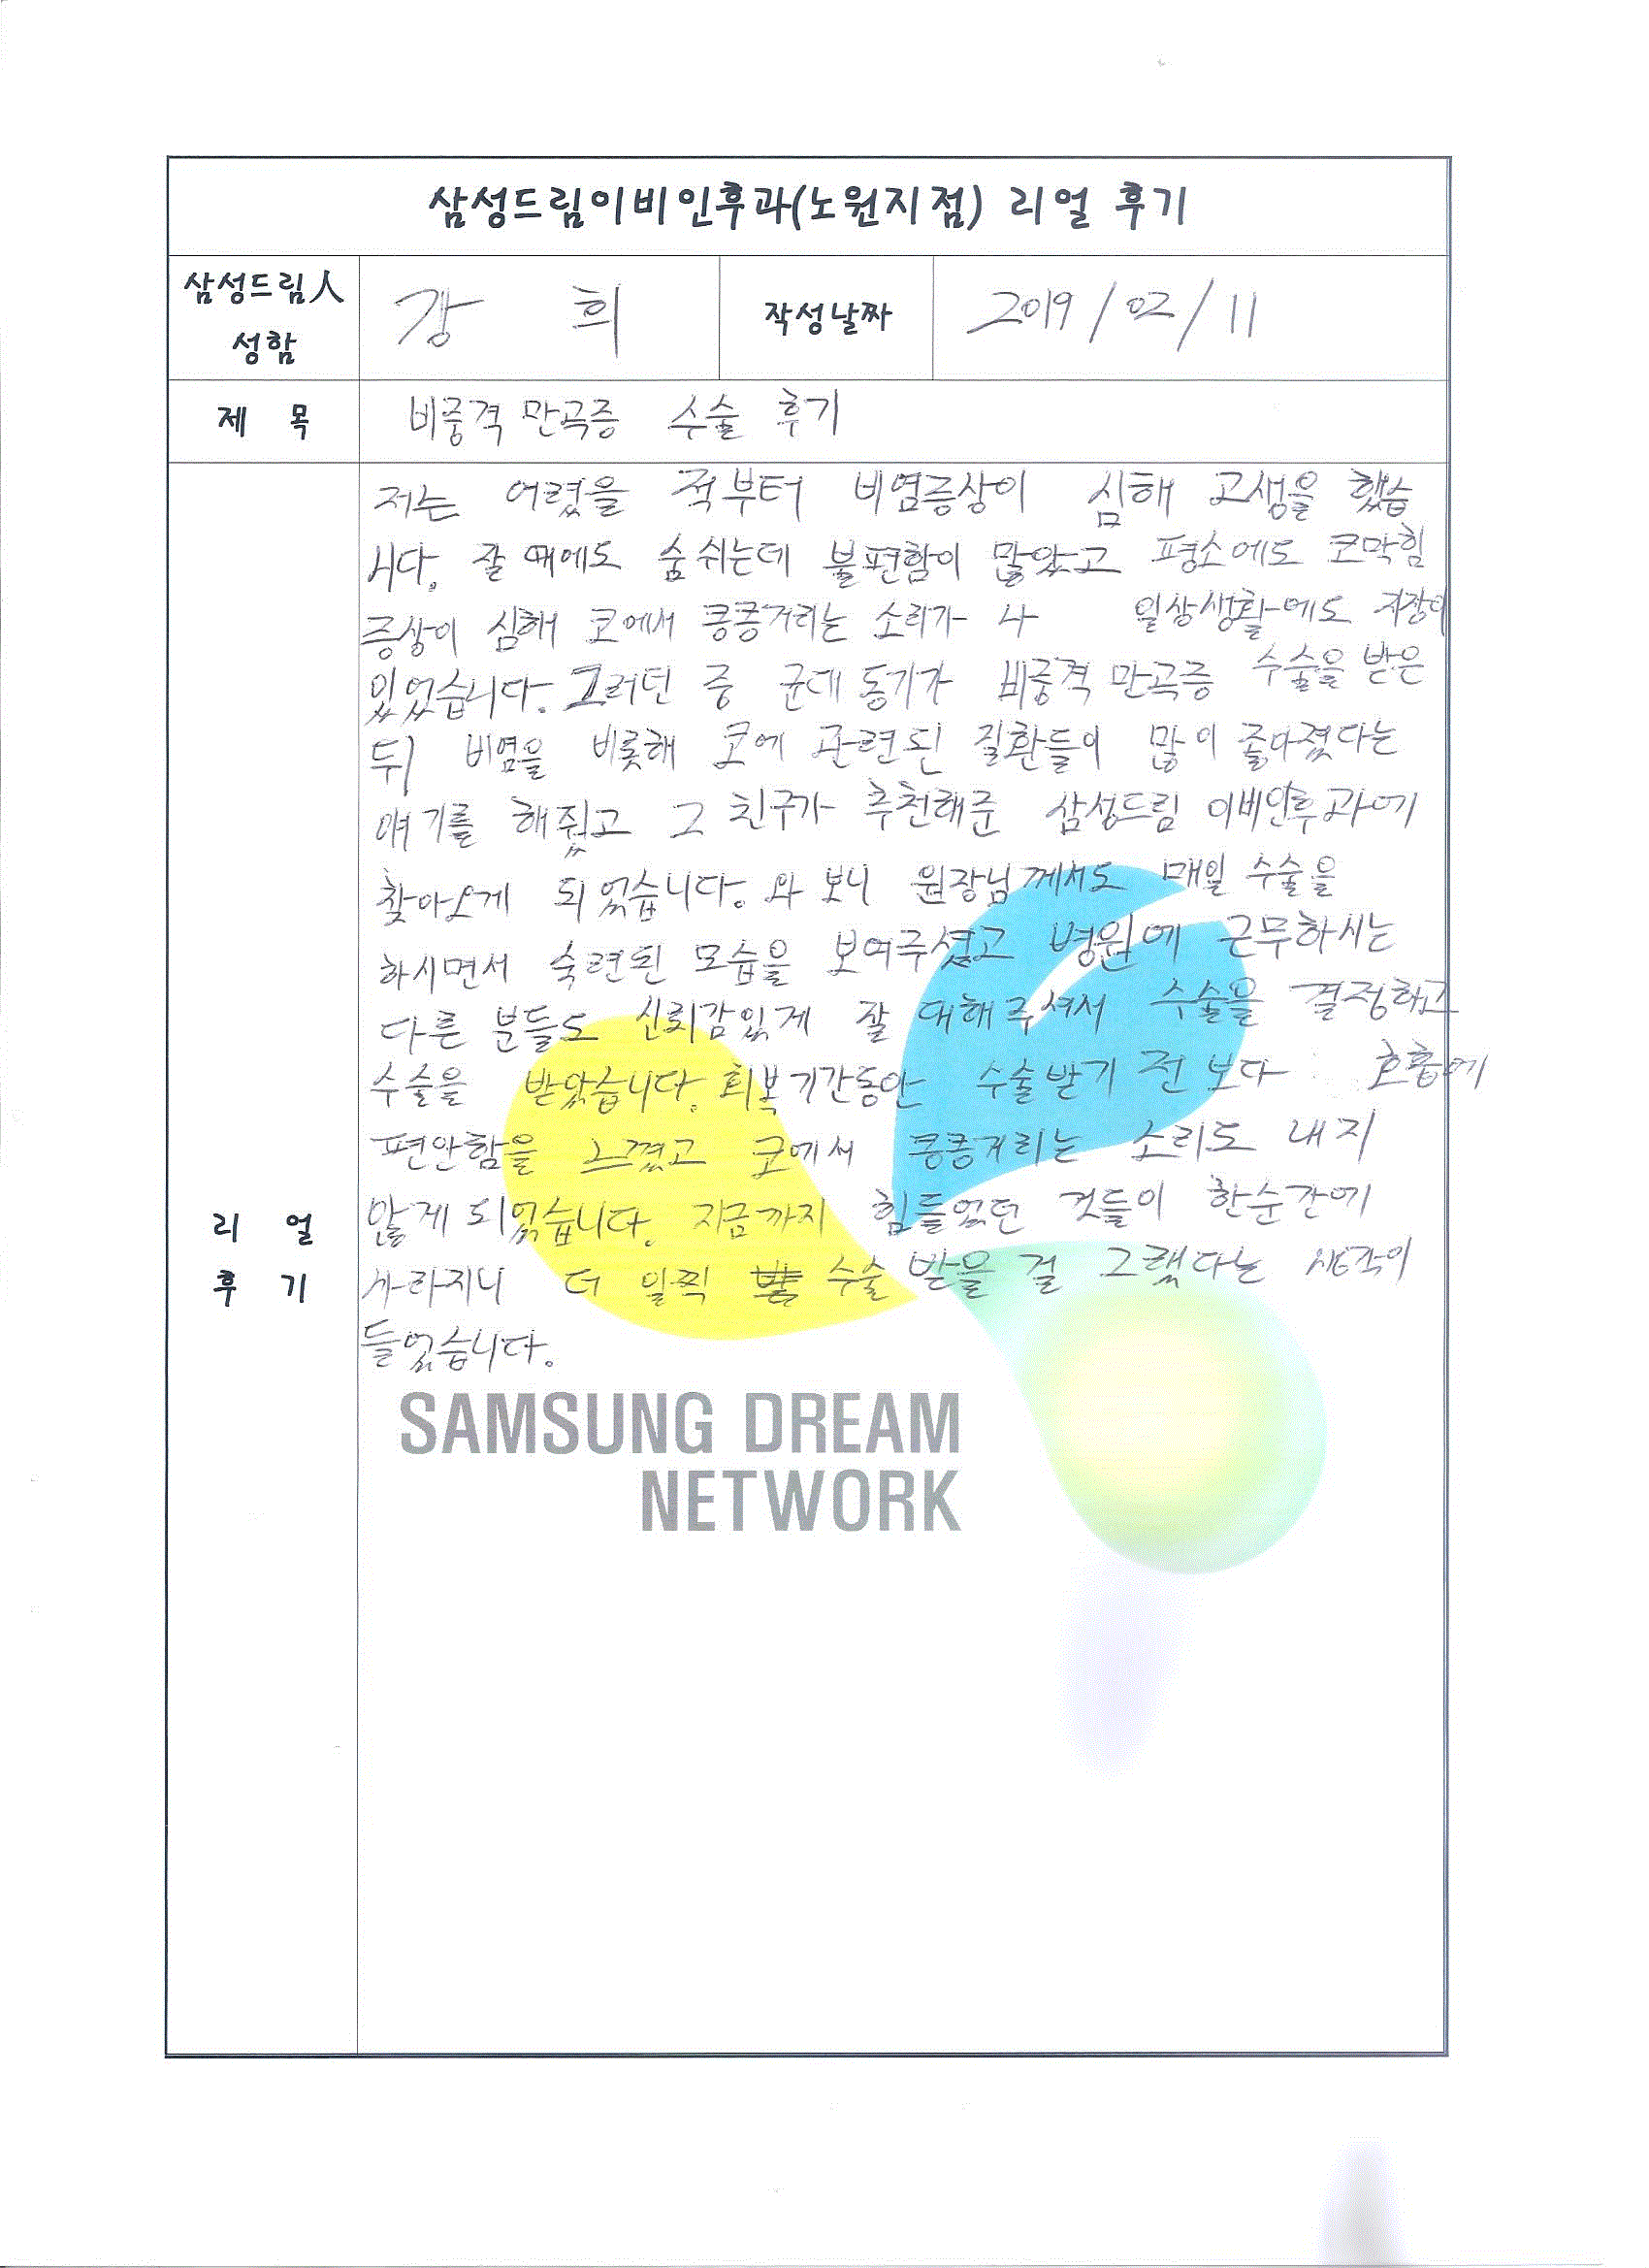 삼성드림이비인후과(노원지점) 리얼 후기
삼성드림人 성함
강 희
작성날짜
2019/02/11
제 목
비중격 만곡증 수술 후기
리 얼 후 기
저는 어렸을 적부터 비염증상이 심해 고생을 했습
니다. 잘 때에도 숨쉬는데 불편함이 많았고 평소에도 코막힘
증상이 심해 코에서 킁킁거리는 소리가 나 일상생활에도 지장이
있었습니다. 그러던 중 군대 동기가 비중격 만곡증 수술을 받은
뒤 비염을 비롯해 코에 관련된 질환들이 많이 좋아졌다는
얘기를 해줬고 그 친구가 추천해준 삼성드림 이비인후과에
찾아오게 되었습니다. 와 보니 원장님께서도 매일 수술을
하시면서 숙련된 모습을 보여주셨고 병원에 근무하시는
다른 분들도 신뢰감있게 잘 대해주셔서 수술을 결정하고
수술을 받았습니다. 회복기간동안 수술받기 전 보다 호흡에
편안함을 느꼈고 코에서 킁킁거리는 소리도 내지
않게 되었습니다. 지금까지 힘들었던 것들이 한순간에
사라지니 더 일찍 수술 받을 걸 그랬다는 생각이
들었습니다.
SAMSUNG DREAM
NETWORK